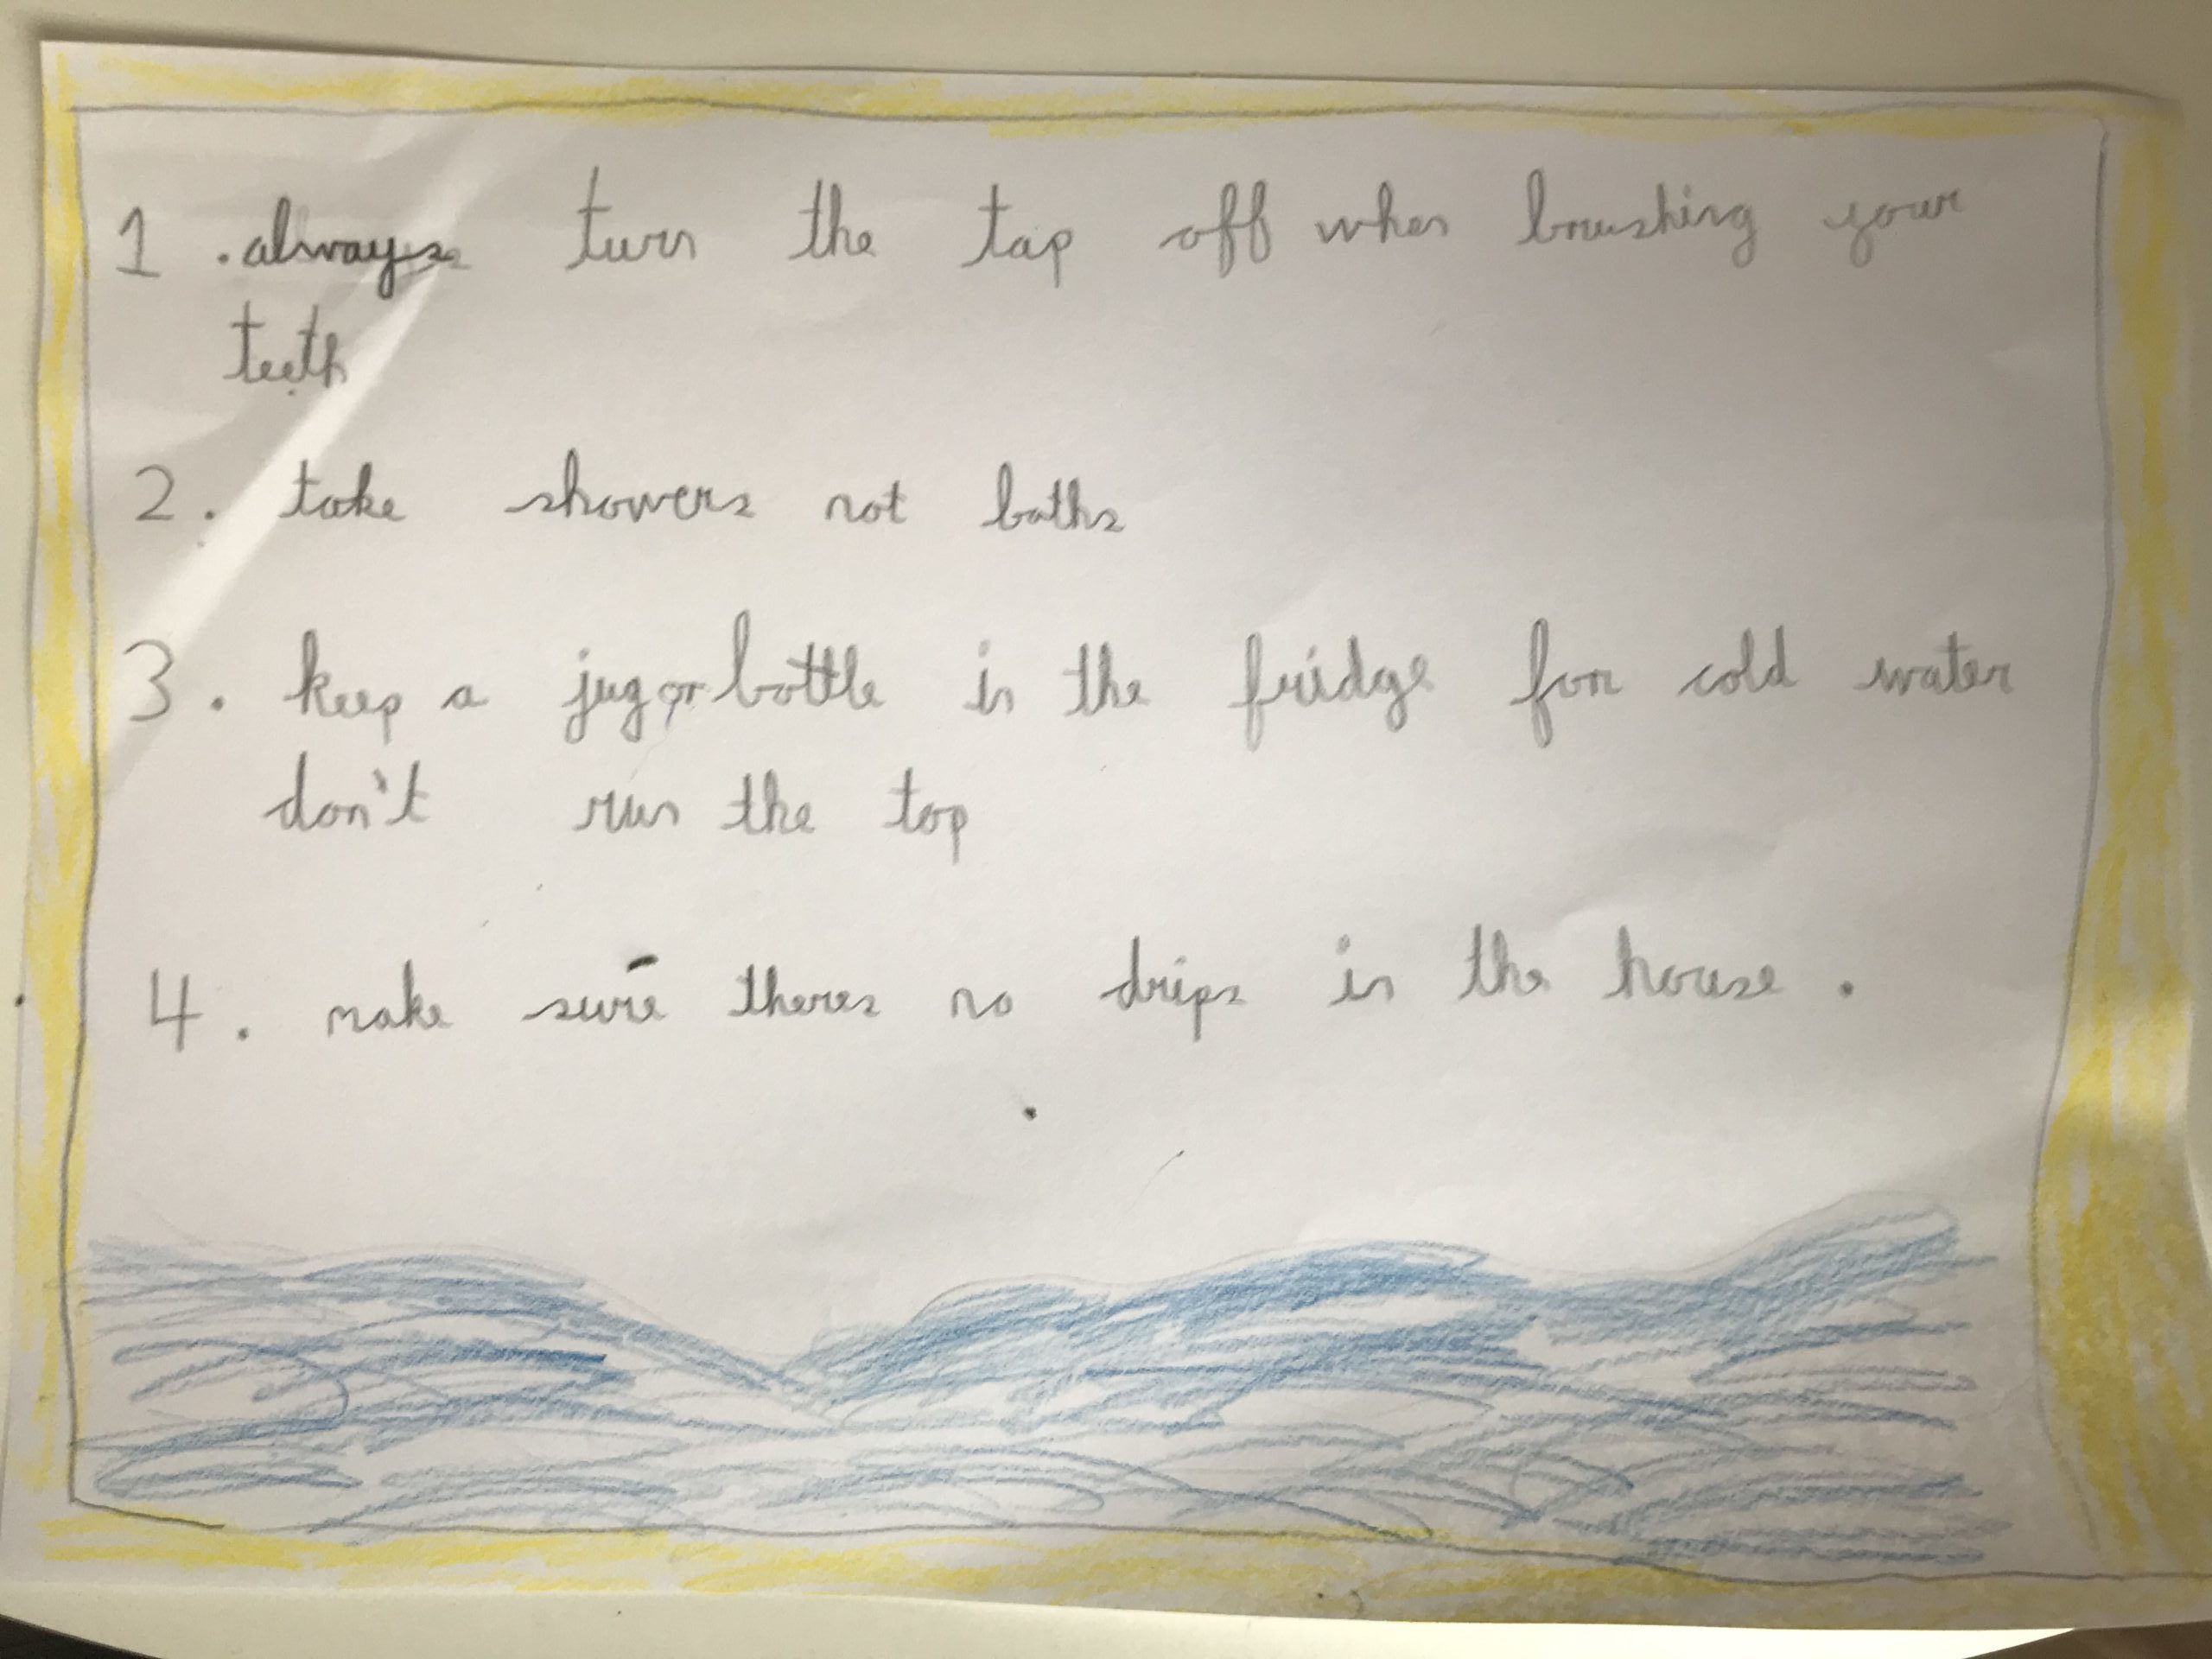 1. always turn the tap off when brushing your
teeth
2. take showers not baths
3. keep a jug or bottle in the fridge for cold water
don't run the tap
4. make sure theres no drips in the house.